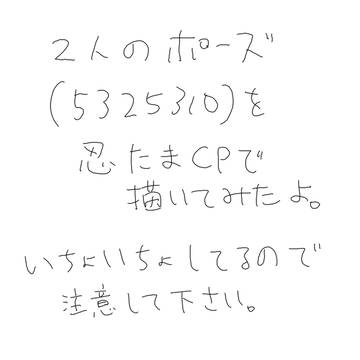 2人のポーズ
(5325310)を
忍たまCPで
描いてみたよ。
いちょいちょしてるので
注意して下さい。